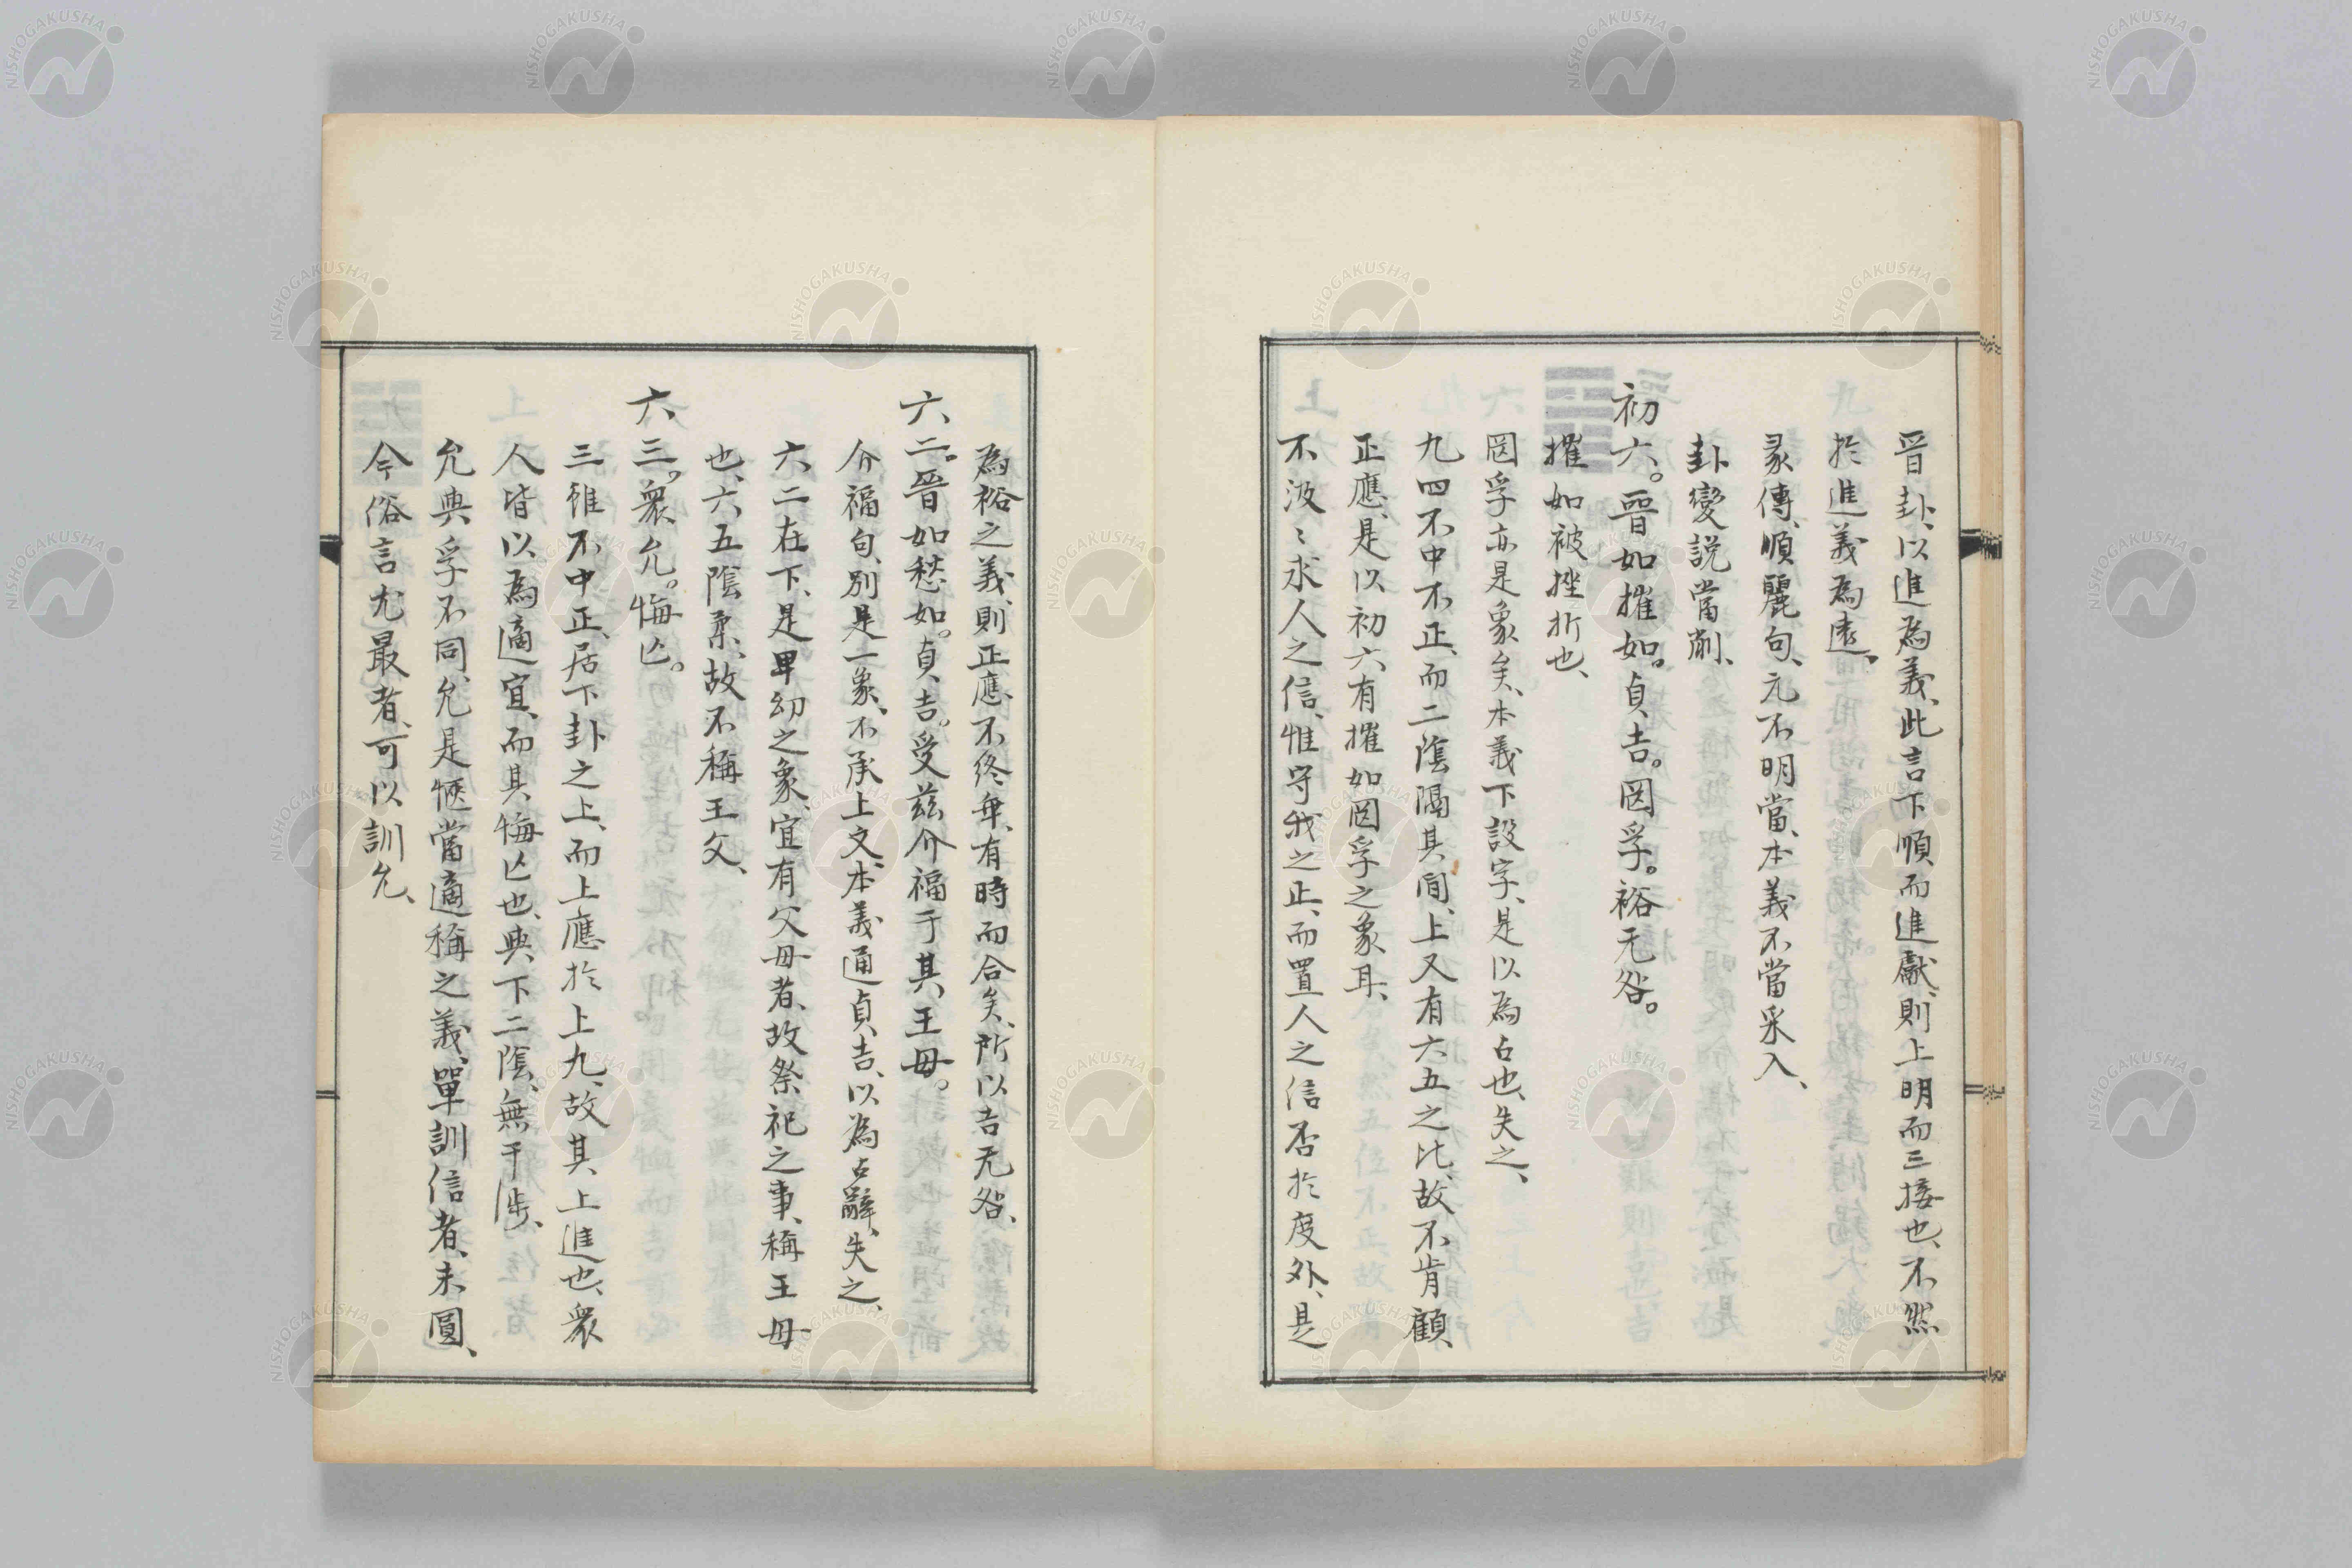 晉卦、以進為義、此言下順而進獻、則上明而三接也、不然
於進義為遠、
彖傳、順麗句、元不明當、本義不當采入、
卦變説當削、
初六。晉如摧如。貞吉。罔孚。裕无咎。
摧如被挫折也、
罔孚亦是象矣、本義下設字、是以為占也、失之、
九四不中不正、而二陰隔其間、上又有六五之比、故不肯顧、
正應、是以初六有摧如罔孚之象耳、
不汲〻求人之信、惟守我之正、而置人之信否於度外、是
為裕之義、則正應不終乖、有時而合矣、所以吉无咎、
六二。晉如愁如。貞吉。受茲介福于其王母。
介福句、別是一象、不承上文、本義通貞吉、以為占辭、失之、
六二在下、是卑幼之象、宜有父母者、故祭祀之事、稱王母
也、六五陰柔、故不稱王父、
六三。衆允。悔亡。
三雖不中正、居下卦之上、而上應於上九、故其上進也、衆
人皆以為適宜、而其悔亡也、與下二陰、無干涉、
允與孚不同、允是愜當適稱之義、單訓信者、未圓、
今俗言尤最者、可以訓允、
NISHOGAKUSHA